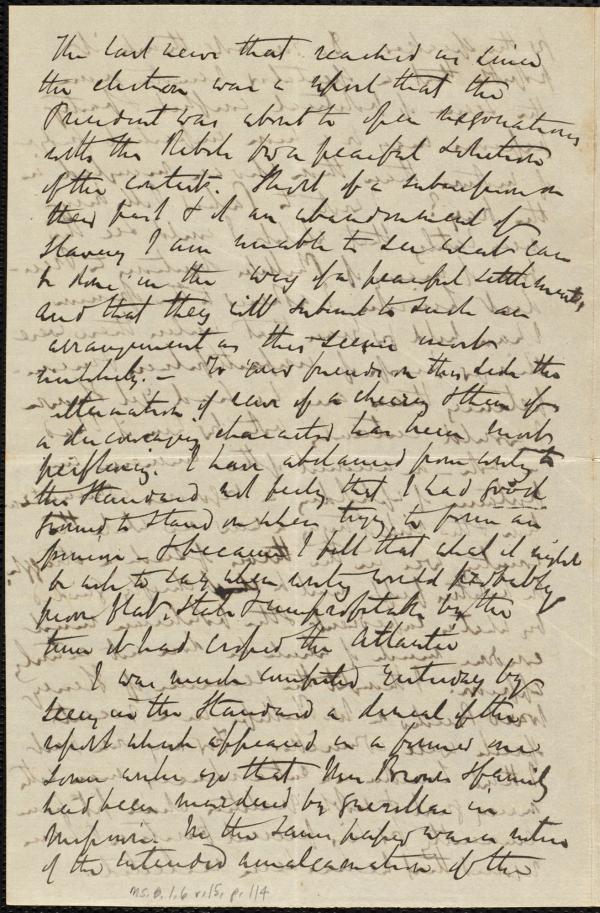 The last news that reached us since
the election was a report that the
President was about to open negotiations
with the Rebels for a peaceful solution
of the contest. Short of a submission on
their part & of an abandonment of
Slavery I am unable to see what can
be done in the way of a peaceful settlement,
and that they will submit to such an
arrangement as this seems most
unlikely. — To your friends on this side the
alternation of news of a cheering & then of
a discouraging character has been most
perplexing. I have abstained from writing to
the Standard not feeling that I had good
ground to stand on when trying to form an
opinion — & because I felt that what it might
be well to say when writing would probably
prove flat, stale & unprofitable by the
time it had crossed the Atlantic
I was much comforted yesterday by
seeing in the Standard a denial of the
report which appeared in a former one
some weeks ago that Mrs Brown & family
had been murdered by guerillas in
Missouri. In the same paper was a notice
of the intended amalgamation of the
Ms. B. 1.6 v.15, p. 114